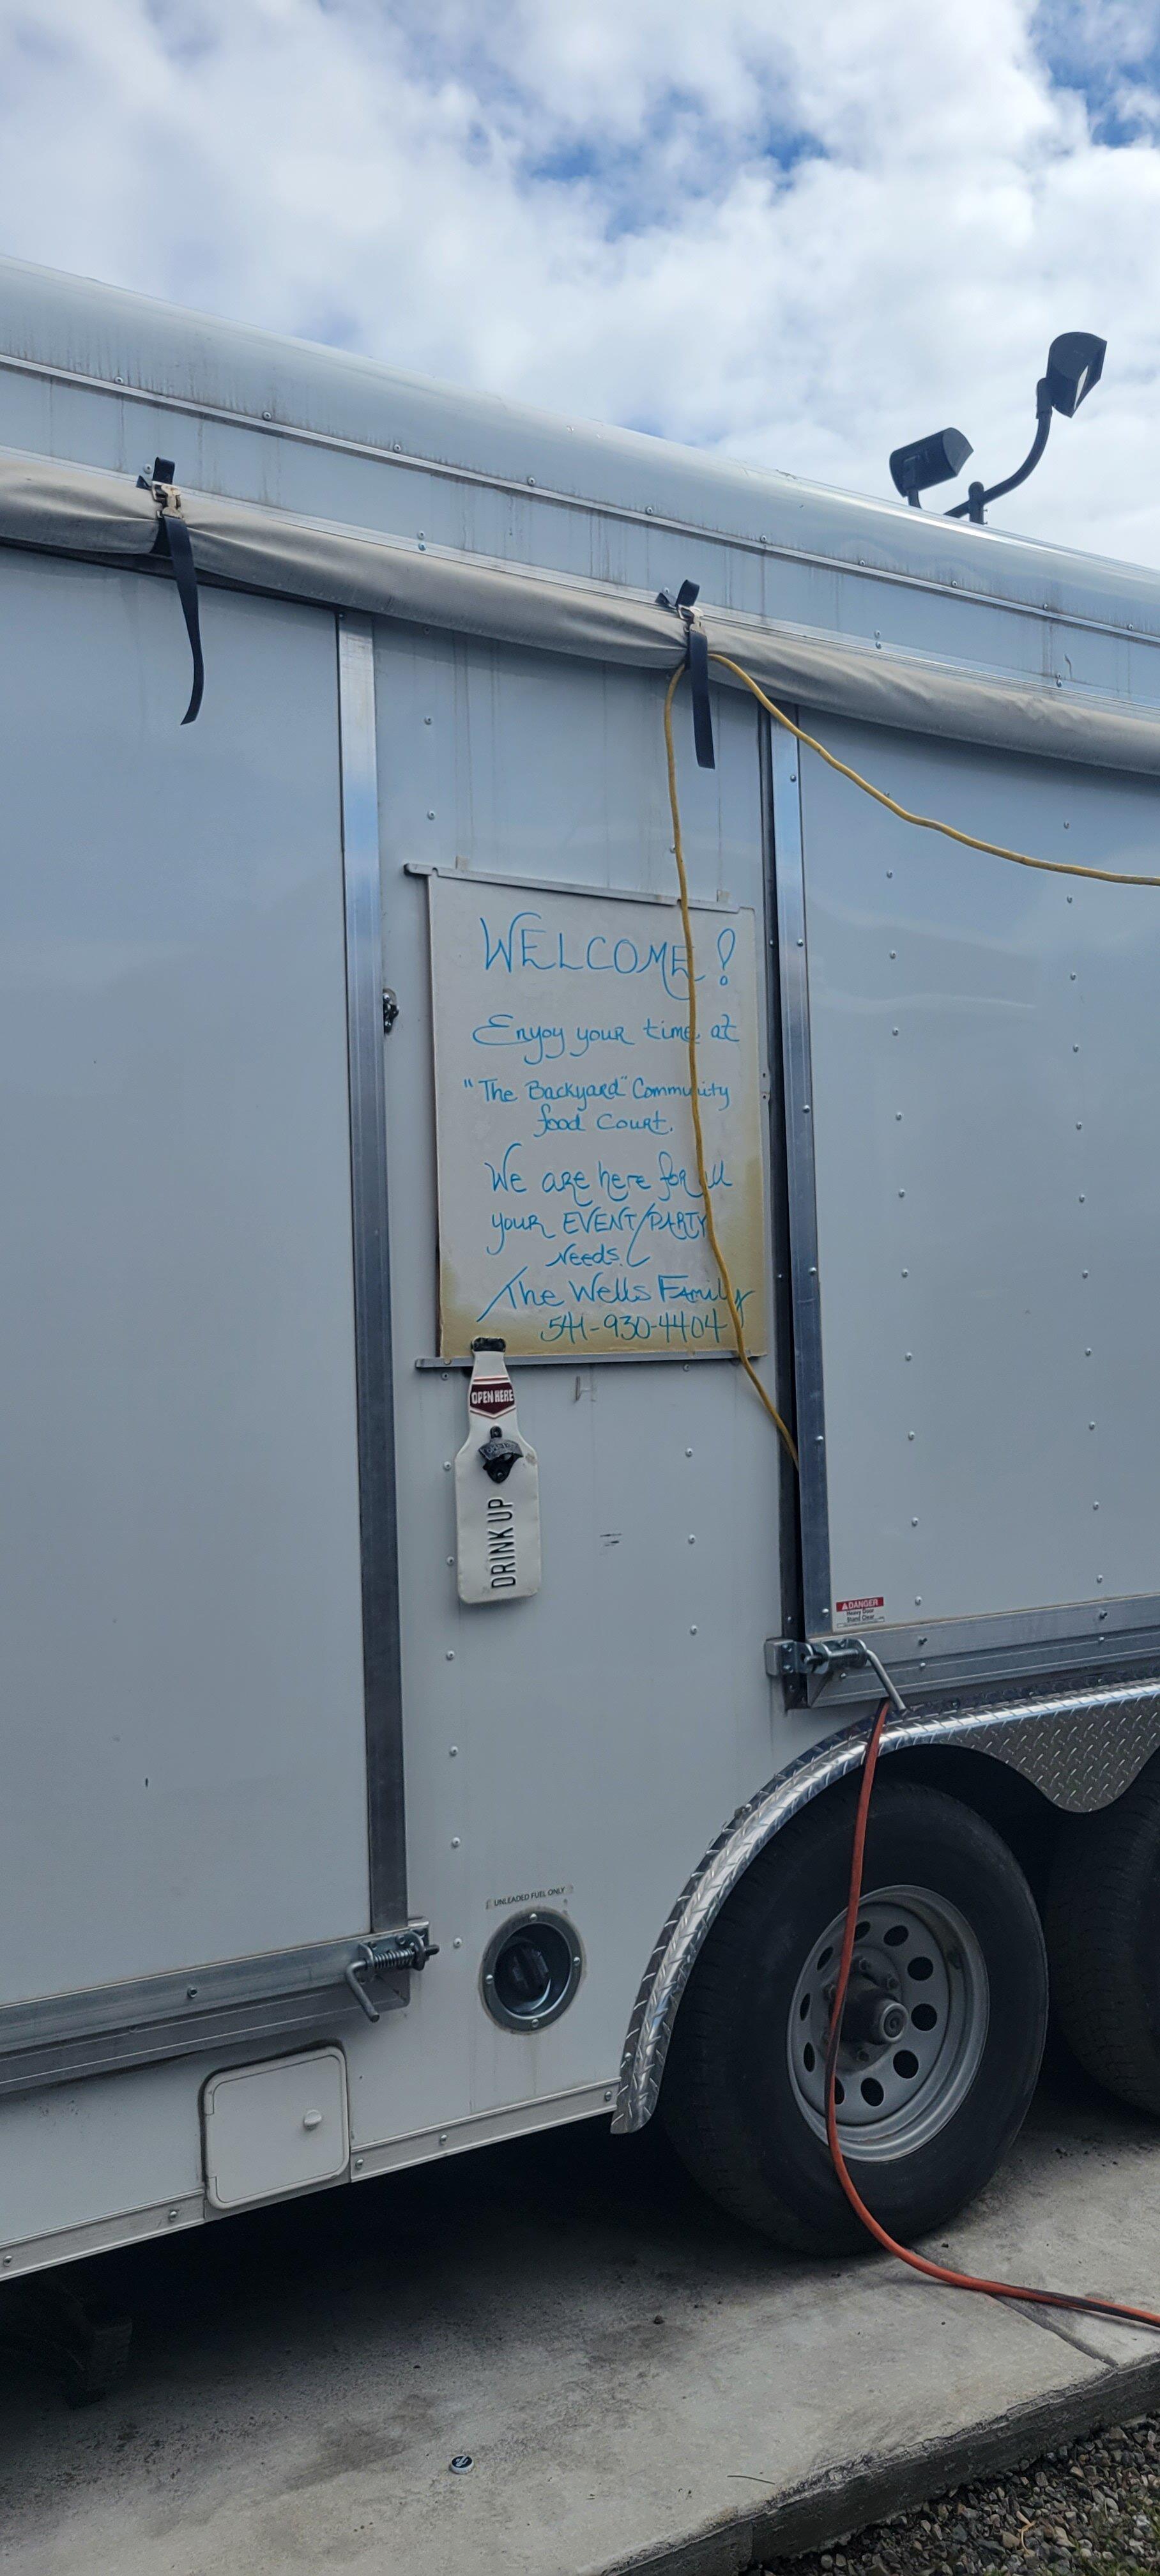 WELCOME!
Enjoy your time at
"The Backyard" Community
food Court.
We are here for all
your EVENT/PARTY
Needs.
The Wells Family
541-930-4404
OPEN HERE
DRINK UP
DANGER
Heavy Door
Stand Clear
UNLEADED FUEL ONLY